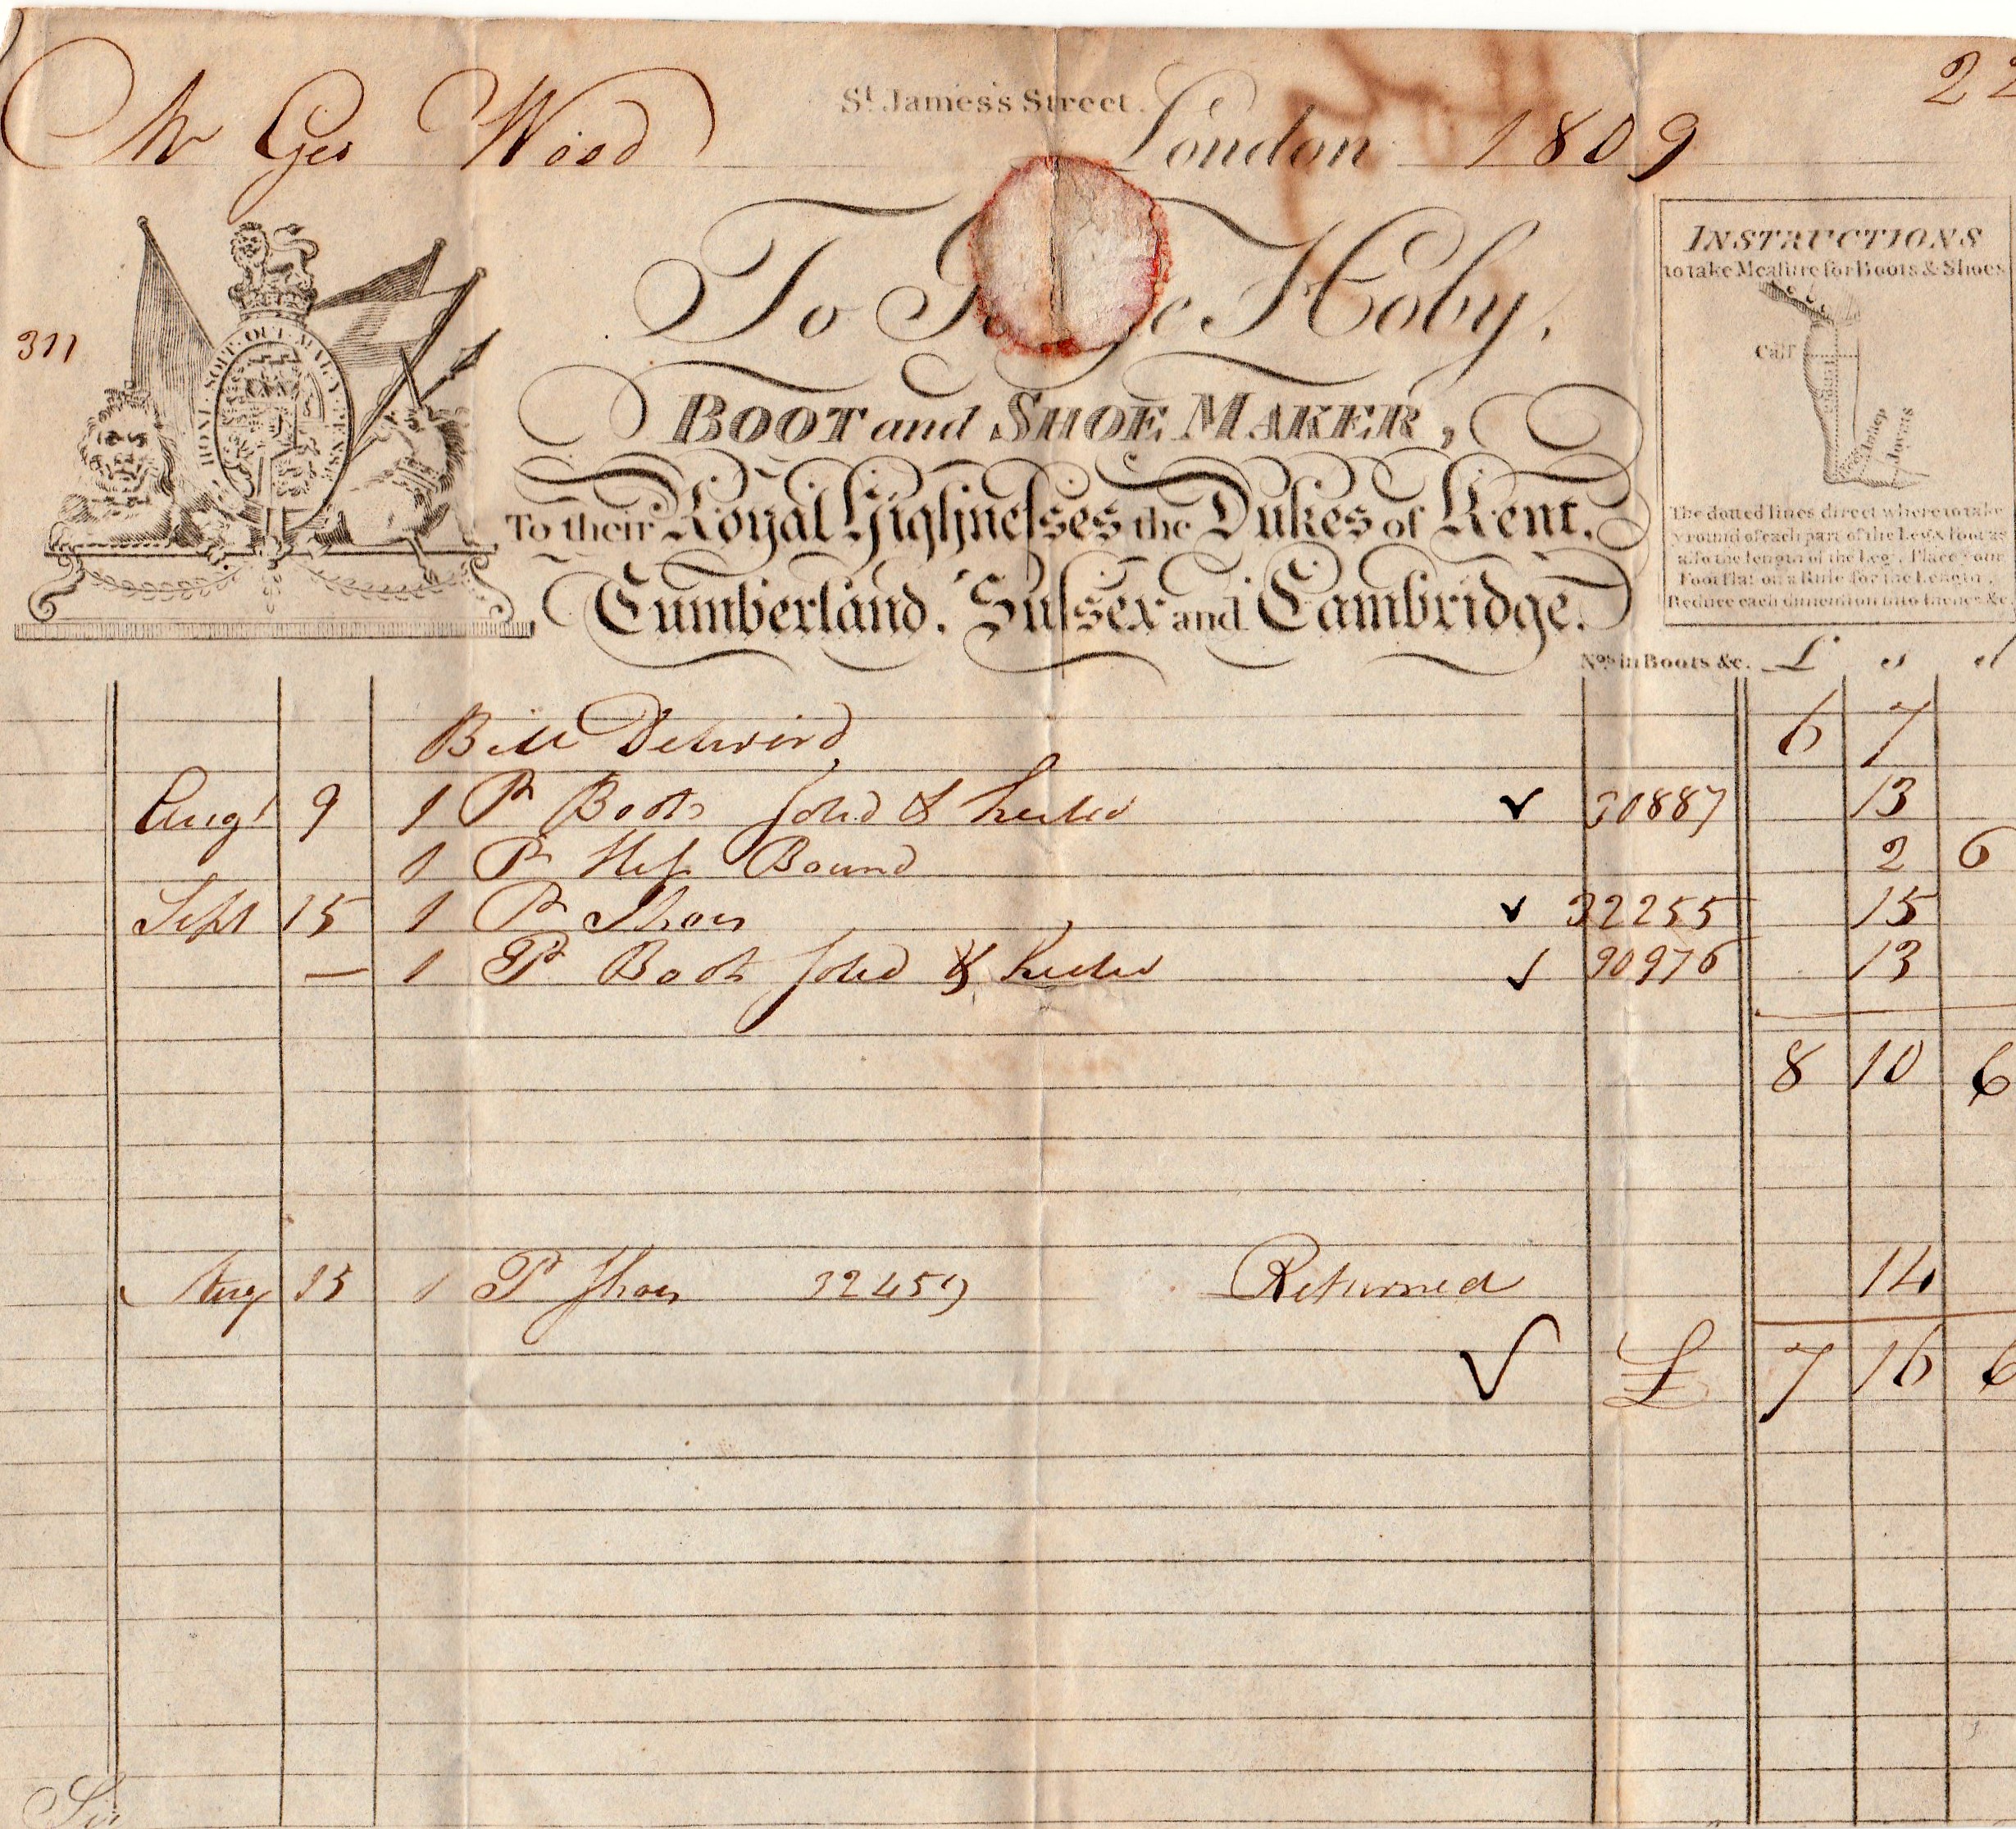 22
St. James's Street.
Mr Geo Wood London 1809
To G ge Hoby,
BOOT and SHOE MAKER,
To their Royal Highnesses the Dukes of Kent,
Cumberland, Sussex and Cambridge.
311
HONI. SOIT. QUI. MAL. Y. PENSE
INSTRUCTIONS
to take Measure for Boots & Shoes
Calf
Instep
Joynts
The dotted lines direct where to take
y round of each part of the Leg & Foot as
also the length of the Leg. Place your
Foot flat on a Rule for the Length.
Reduce each dimention into Inches &c.
Nos. in Boots &c. £ s d
Bill Deliverd 6 7
Augt 9 1 Pr Boots soled & heeled ✓ 30887 13
1 Pr Bound 2 6
Sept 15 1 Pr Shoes ✓ 32255 15
— 1 Pr Boots soled & heeled ✓ 90976 13
8 10 6
Aug 15 1 Pr Shoes 32459 Returned 14
✓ £ 7 16 6
Sir